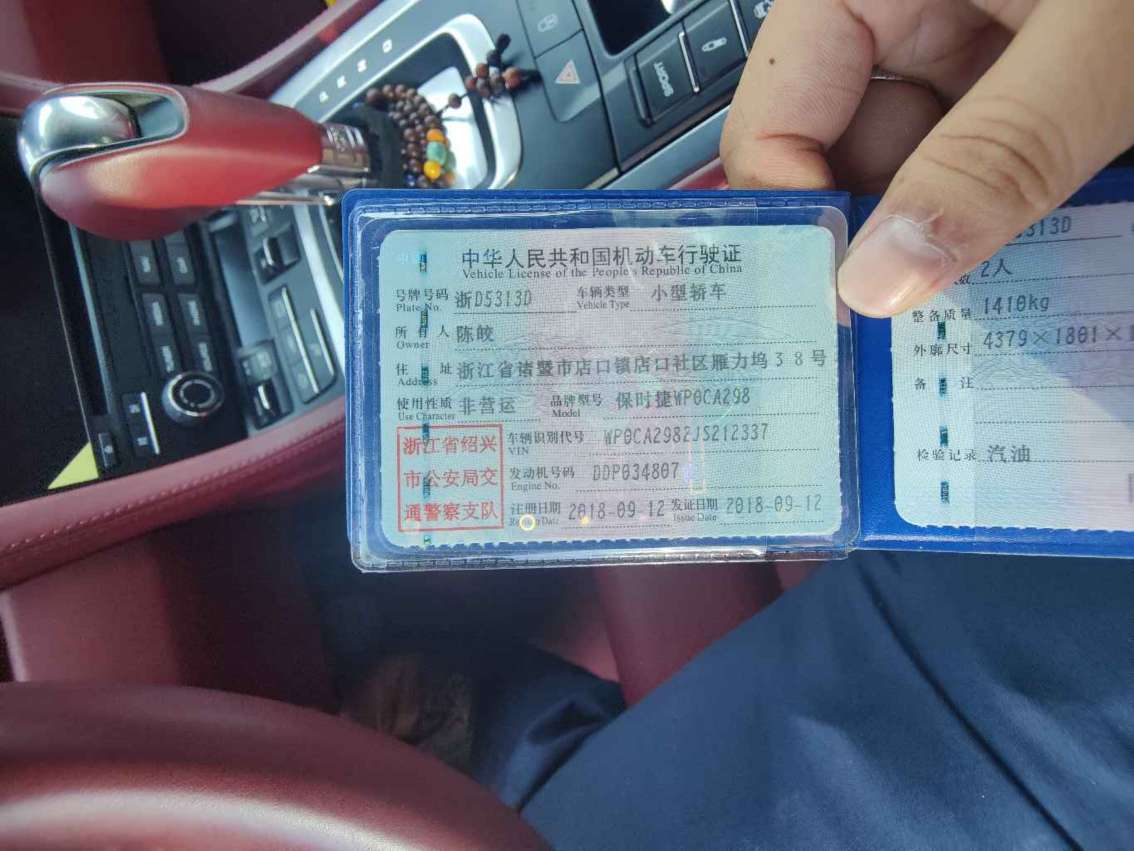 中华人民共和国机动车行驶证
Vehicle License of the People's Republic of China
号牌号码 浙D5313D 车辆类型 小型轿车
Plate No. Vehicle Type
所有人 陈皎
Owner
住址 浙江省诸暨市店口镇店口社区雁力坞38号
Address
使用性质 非营运 品牌型号 保时捷WP0CA298
Use Character Model
浙江省绍兴
市公安局交
通警察支队
车辆识别代号 WP0CA2982JS212337
VIN
发动机号码 DDP034807
Engine No.
注册日期 2018-09-12 发证日期 2018-09-12
Register Date Issue Date
5313D
2人
整备质量 1410kg
外廓尺寸 4379×1801×1
备注
检验记录 汽油
SPORT